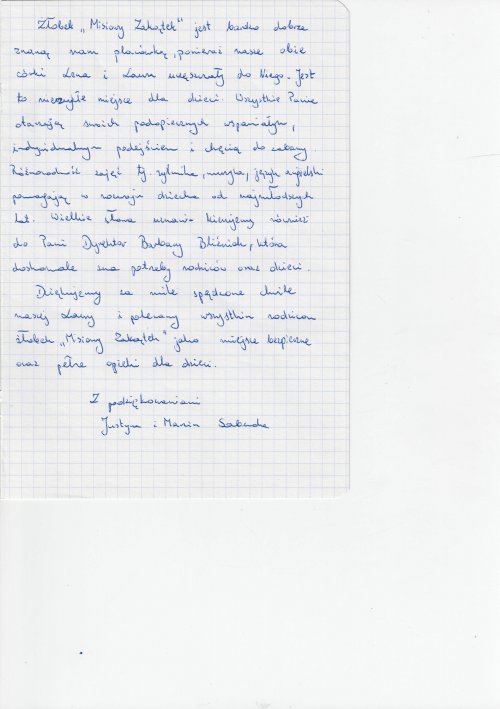 Żłobek „Misiowy Zakątek" jest bardzo dobrze
znaną nam placówką, ponieważ nasze obie
córki Lena i Laura uczęszczały do Niego. Jest
to niezwykłe miejsce dla dzieci. Wszystkie Panie
otaczają swoich podopiecznych wspaniałym,
indywidualnym podejściem i chęcią do zabawy.
Różnorodność zajęć tj. rytmika, muzyka, język angielski
pomagają w rozwoju dziecka od najmłodszych
lat. Wielkie słowa uznania kierujemy również
do Pani Dyrektor Barbary Bliźniak, która
doskonale zna potrzeby rodziców oraz dzieci.
Dziękujemy za miło spędzone chwile
naszej Laury i polecamy wszystkim rodzicom
żłobek „Misiowy Zakątek" jako miejsce bezpieczne
oraz pełne opieki dla dzieci.
Z podziękowaniami
Justyna i Marcin